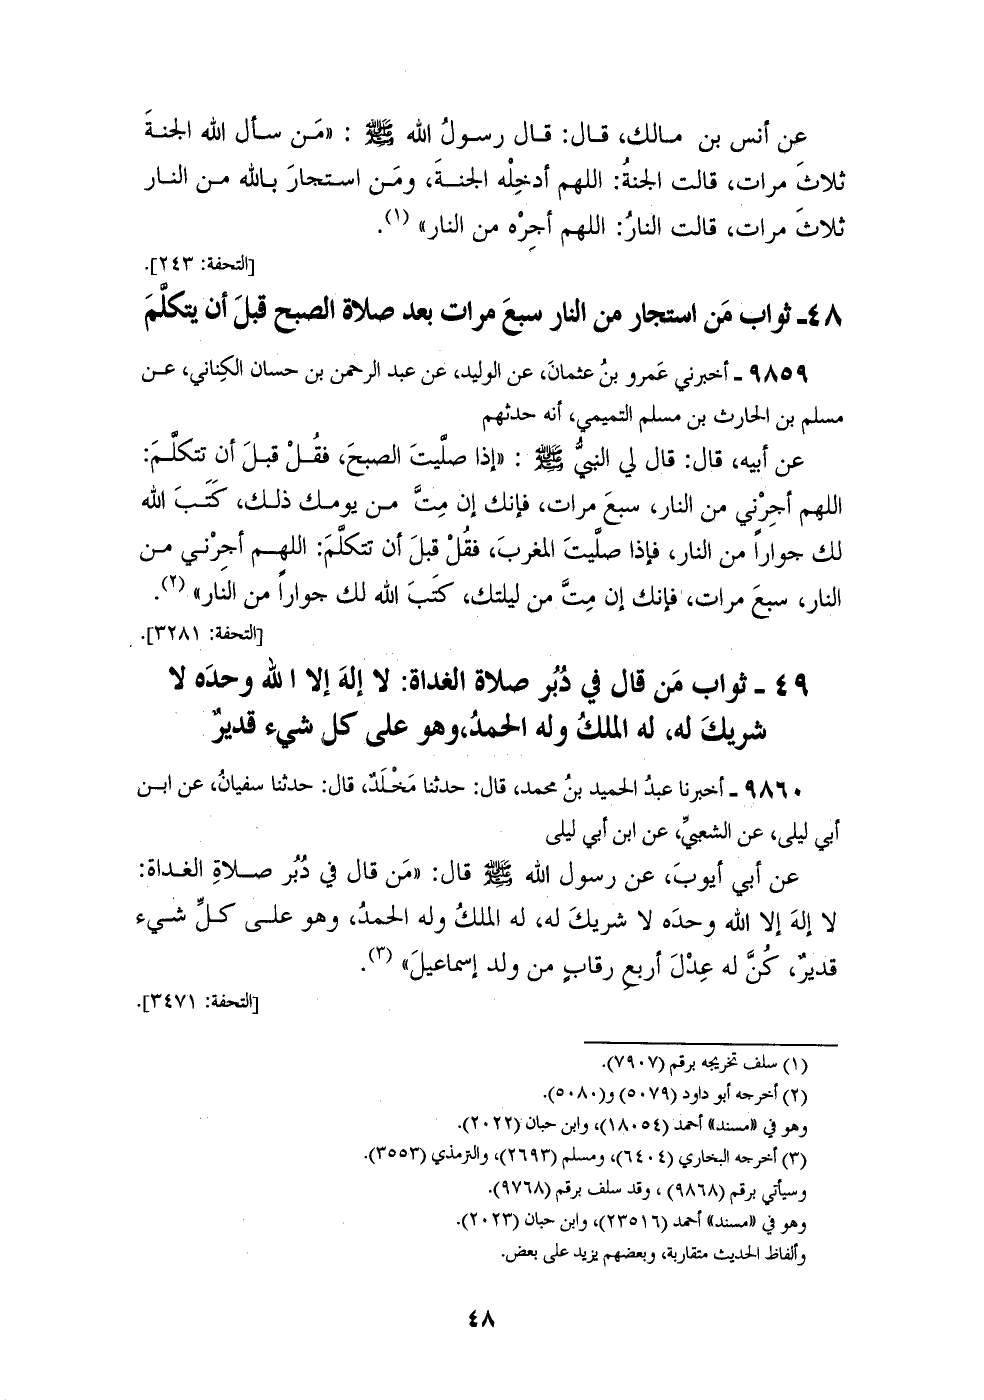 عن أنس بن مالك، قال: قال رسولُ الله ﷺ : «مَن سأل الله الجنةَ
ثلاثَ مرات، قالت الجنةُ: اللهم أدخِلْه الجنةَ، ومَن استجارَ بالله من النار
ثلاثَ مرات، قالت النارُ: اللهم أجِرْه من النار» (١).
[التحفة: ٢٤٣].
٤٨ـ ثواب مَن استجار من النار سبعَ مرات بعد صلاة الصبح قبلَ أن يتكلَّمَ
٩٨٥٩ ـ أخبرني عَمرو بنُ عثمانَ، عن الوليد، عن عبد الرحمن بن حسان الكِناني، عن
مسلم بن الحارث بن مسلم التميمي، أنه حدثهم
عن أبيه، قال: قال لي النبيُّ ﷺ : «إذا صلَّيتَ الصبحَ، فقُلْ قبلَ أن تتكلَّمَ:
اللهم أجِرْني من النار، سبعَ مرات، فإنك إن مِتَّ من يومك ذلك، كَتَبَ الله
لك جواراً من النار، فإذا صلَّيتَ المغربَ، فقُلْ قبلَ أن تتكلَّمَ: اللهم أجِرْني من
النار، سبعَ مرات، فإنك إن مِتَّ من ليلتك، كتَبَ الله لك جواراً من النار» (٢).
[التحفة: ٣٢٨١].
٤٩ ـ ثواب مَن قال في دُبُر صلاة الغداة: لا إلهَ إلا الله وحدَه لا
شريكَ له، له الملكُ وله الحمدُ،وهو على كل شيء قديرٌ
٩٨٦٠ ـ أخبرنا عبدُ الحميد بنُ محمد، قال: حدثنا مَخْلَدٌ، قال: حدثنا سفيانُ، عن ابن
أبي ليلى، عن الشعبيِّ، عن ابن أبي ليلى
عن أبي أيوبَ، عن رسول الله ﷺ قال: «مَن قال في دُبُر صلاةِ الغداة:
لا إلهَ إلا الله وحدَه لا شريكَ له، له الملكُ وله الحمدُ، وهو على كلِّ شيء
قديرٌ، كُنَّ له عِدْلَ أربعِ رقابٍ من ولد إسماعيلَ» (٣).
[التحفة: ٣٤٧١].
(١) سلف تخريجه برقم (٧٩٠٧).
(٢) أخرجه أبو داود (٥٠٧٩) و(٥٠٨٠).
وهو في «مسند» أحمد (١٨٠٥٤)، وابن حبان (٢٠٢٢).
(٣) أخرجه البخاري (٦٤٠٤)، ومسلم (٢٦٩٣)، والترمذي (٣٥٥٣).
وسيأتي برقم (٩٨٦٨) ، وقد سلف برقم (٩٧٦٨).
وهو في «مسند» أحمد (٢٣٥١٦)، وابن حبان (٢٠٢٣).
وألفاظ الحديث متقاربة، وبعضهم يزيد على بعض.
٤٨